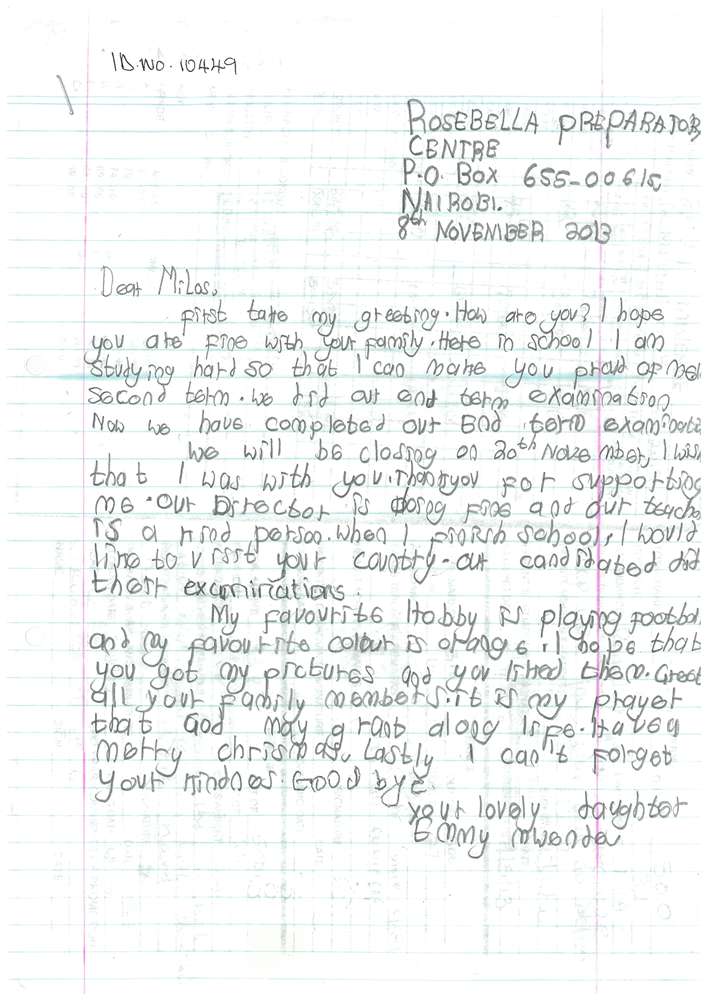 ID.NO. 10449
ROSEBELLA PREPARATOR
CENTRE
P.O. Box 655-00615
NAIROBI.
8th NOVEMBER 2013
Dear Milos,
First take my greeting. How are you? I hope
you are fine with your family. Here in school I am
studying hard so that I can make you proud of me
second term. we did our end term examination
Now we have completed our End term examinati
we will be closing on 20th November, I wish
that I was with you. Thankyou for supporting
me. Our Director is doing fine and our teache
is a kind person. when I finish school, I would
like to visit your country. our candidated did
their examinations.
My favourite Hobby is playing footbal
and my favourite colour is orange. I hope that
you got my pictures and you liked them. Greet
all your family members. it is my prayer
that God may grant along life. Have a
merry chrismas. Lastly I can't forget
your kindnes. Good bye.
your lovely daughter
Emmy Mwende